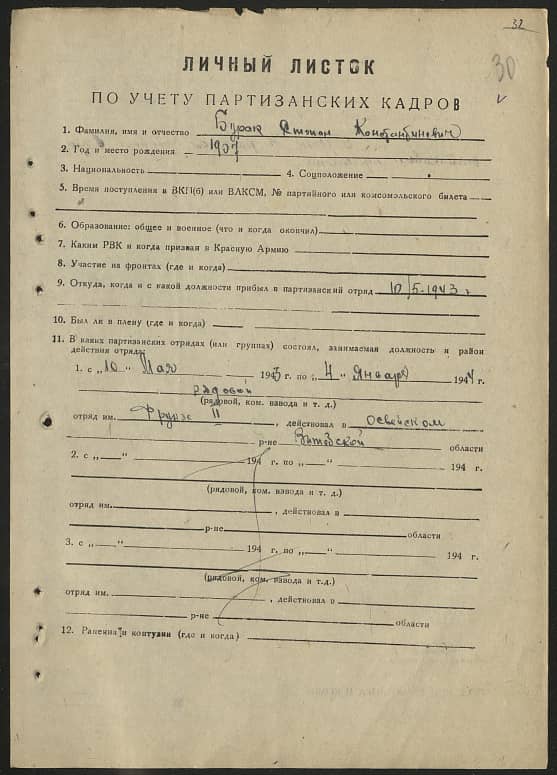 32
30
ЛИЧНЫЙ ЛИСТОК
ПО УЧЕТУ ПАРТИЗАНСКИХ КАДРОВ
1. Фамилия, имя и отчество Бурак Степан Константинович
2. Год и место рождения 1907
3. Национальность 4. Соцположение
5. Время поступления в ВКП(б) или ВЛКСМ, № партийного или комсомольского билета
6. Образование: общее и военное (что и когда окончил)
7. Каким РВК и когда призван в Красную Армию
8. Участие на фронтах (где и когда)
9. Откуда, когда и с какой должности прибыл в партизанский отряд 10/5-1943 г
10. Был ли в плену (где и когда)
11. В каких партизанских отрядах (или группах) состоял, занимаемая должность и район
действия отряда:
1. с „10" Мая 1943 г. по „4" Января 1944 г.
рядовой
(рядовой, ком. взвода и т. д.)
отряд им. Фрунзе II, действовал в Освейском
р-не Витебской области
2. с „—" 194 г. по „—" 194 г.
(рядовой, ком. взвода и т. д.)
отряд им. , действовал в
р-не области
3. с „—" 194 г. по „—" 194 г.
(рядовой, ком. взвода и т.д.)
отряд им. , действовал в
р-не области
12. Ранения и контузии (где и когда)